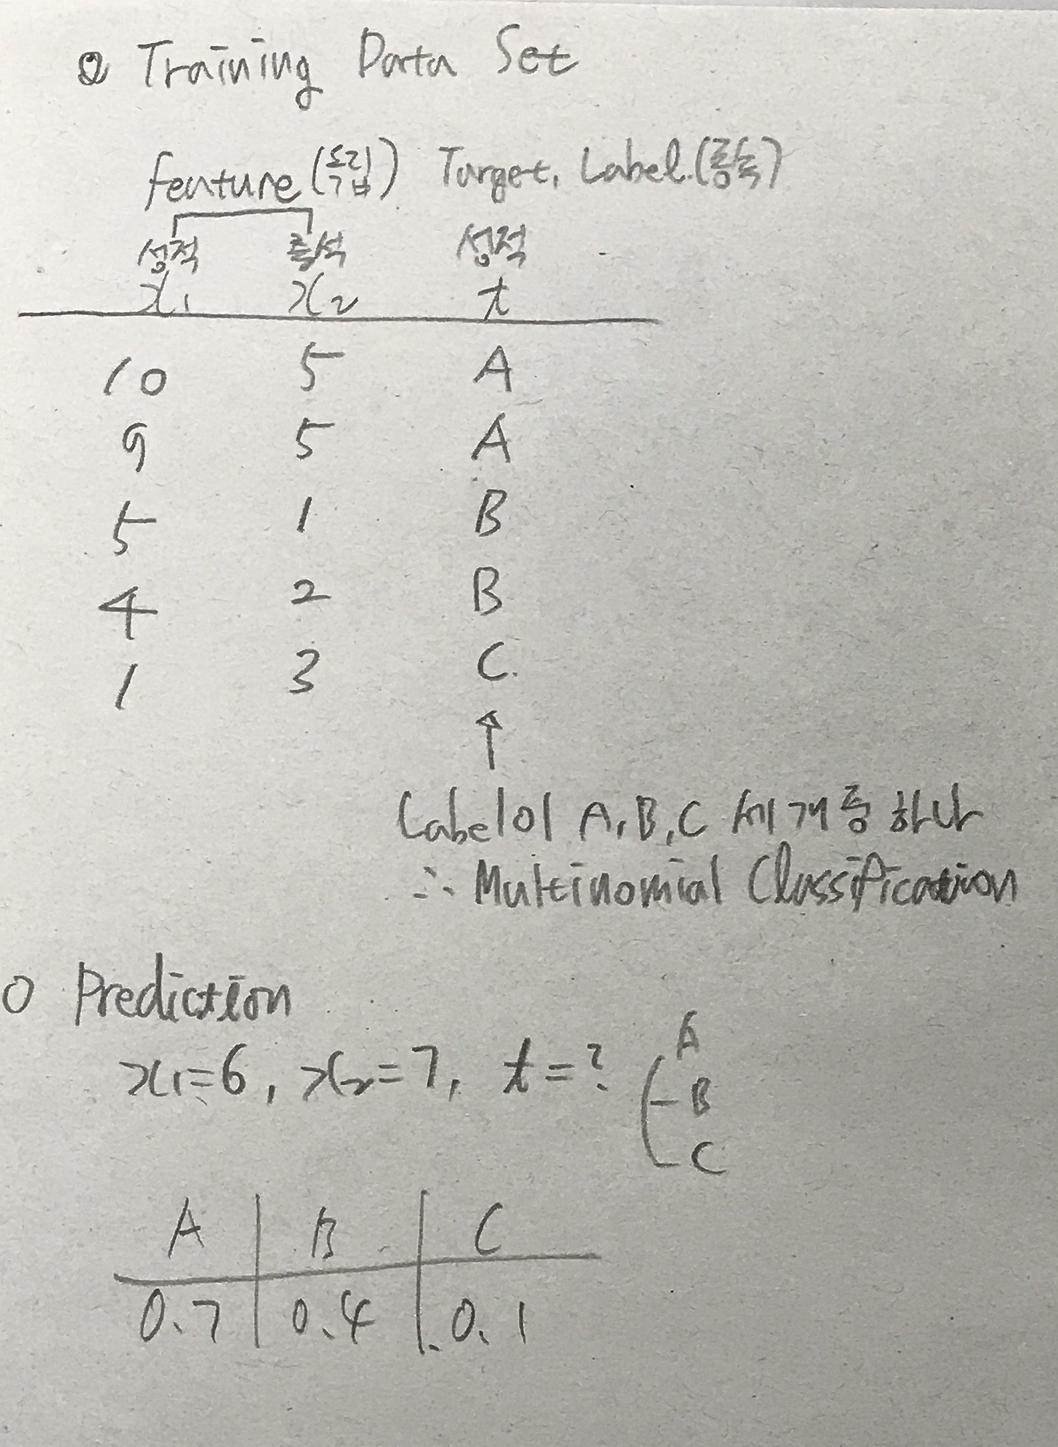 Training Data Set
feature (독립) Target, Label (종속)
성적 출석 성적
x₁ x₂ t
10 5 A
9 5 A
5 1 B
4 2 B
1 3 C
↑
Label이 A, B, C 세개 중 하나
∴ Multinomial Classification
○ Prediction
x₁=6, x₂=7, t=? A
B
C
A B C
0.7 0.4 0.1